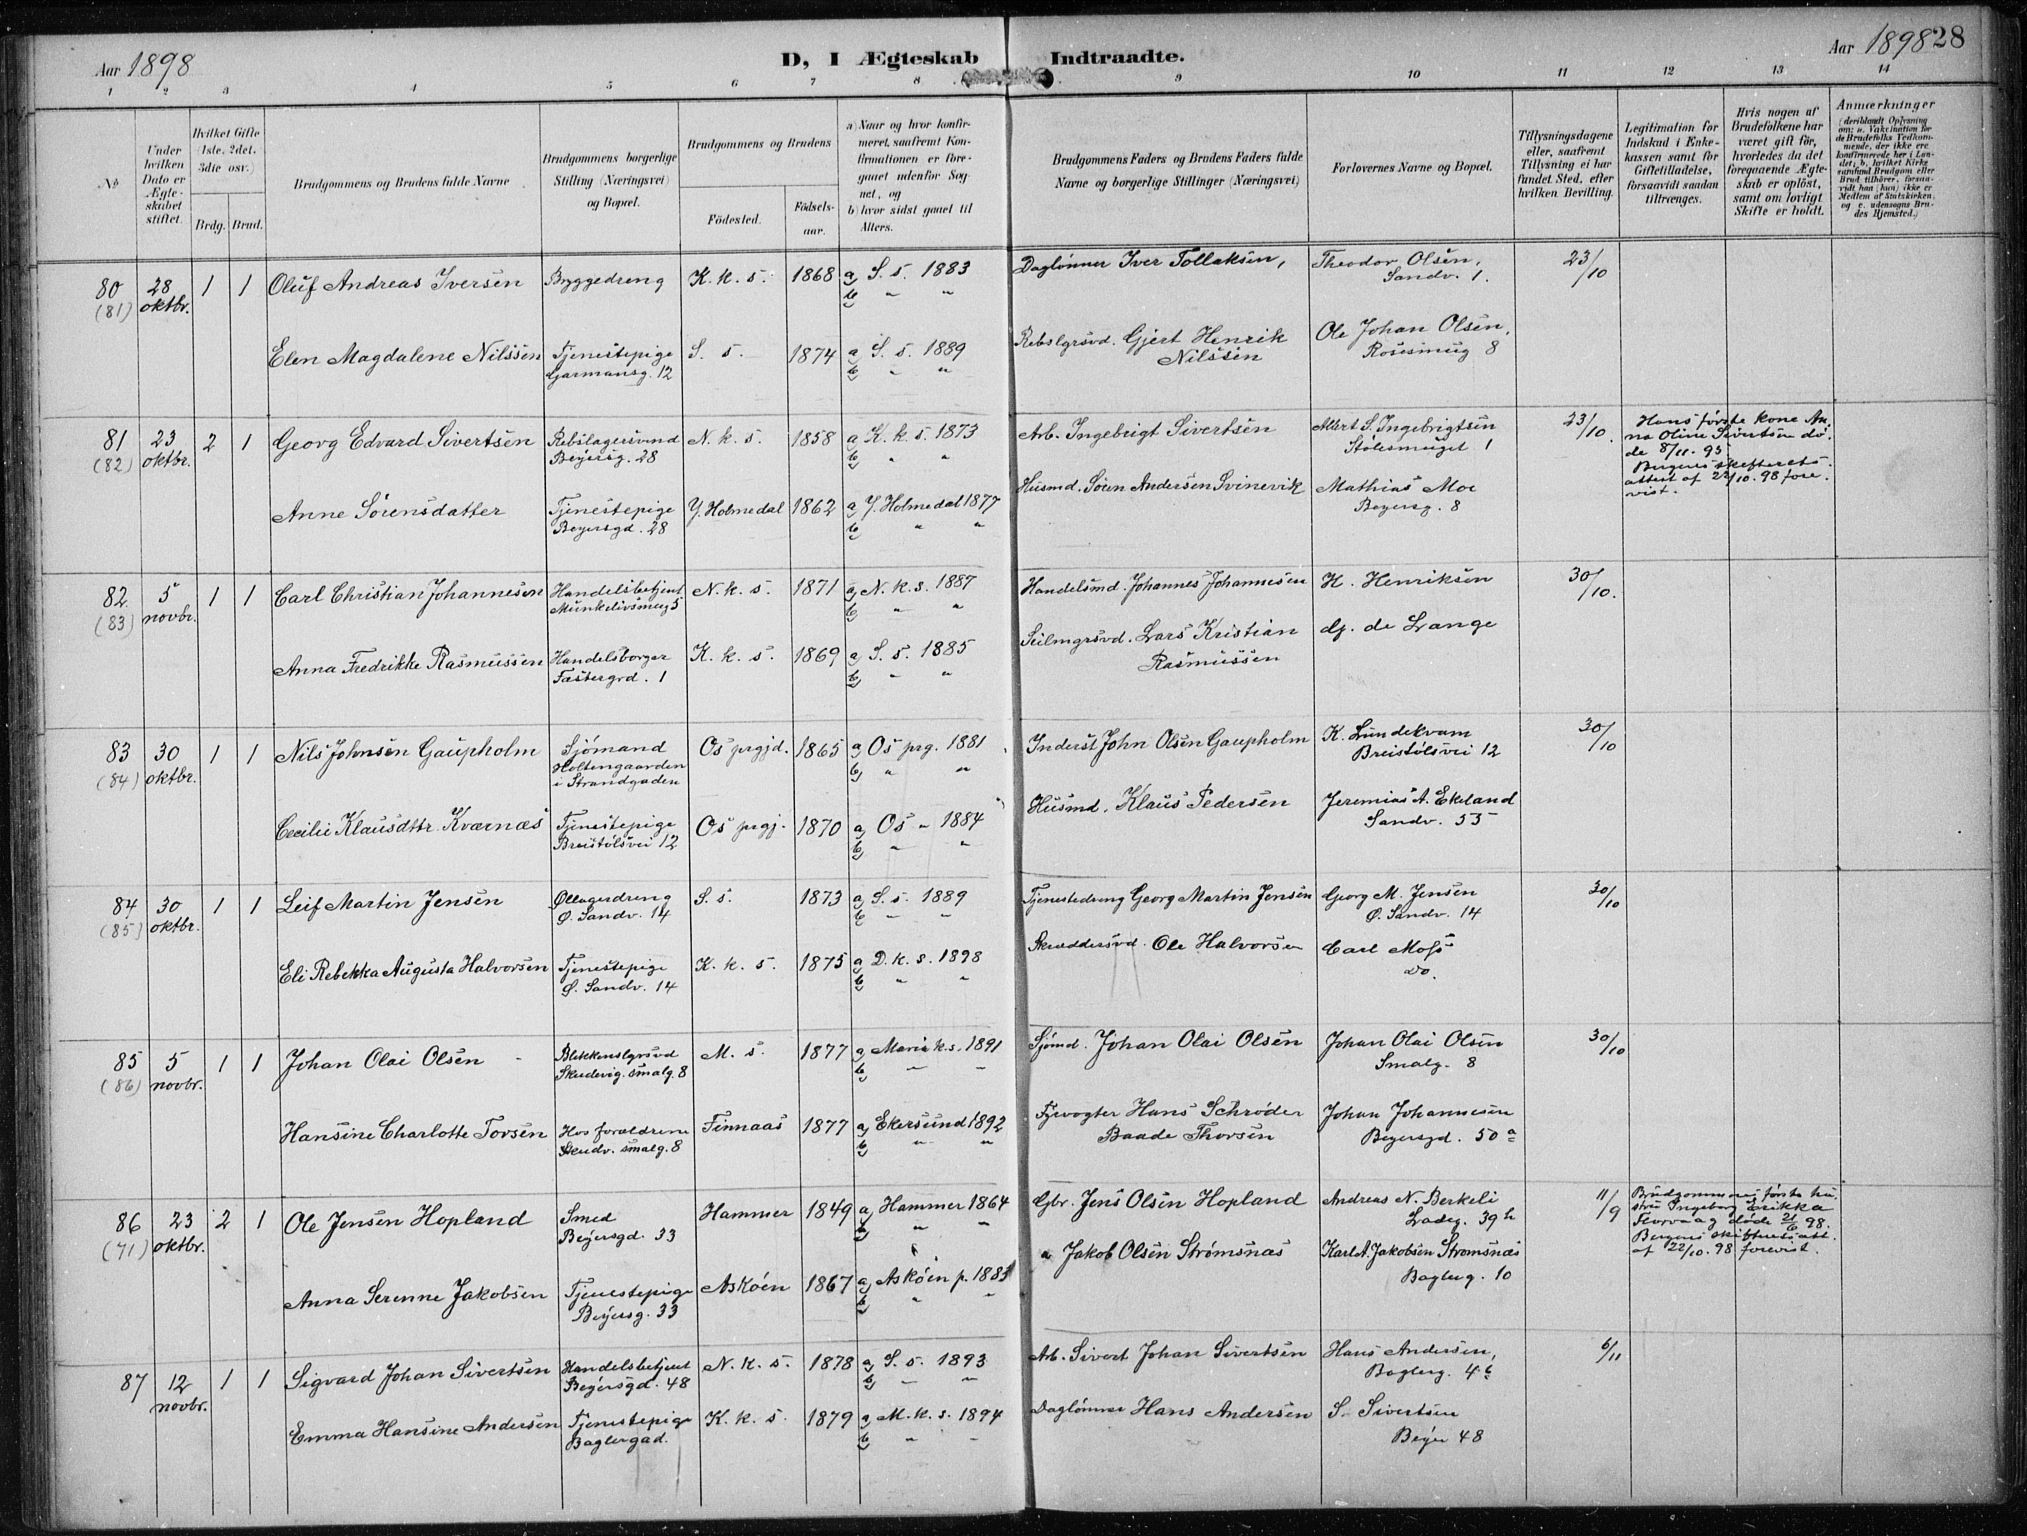 Aar 1898
D, I Ægteskab Indtraadte.
Aar 1898 28
1 2 3 4 5 6 7 8 9 10 11 12 13 14
No
Under hvilken Dato er Ægteskabet stiftet.
Hvilket Gifte (1ste, 2det, 3die osv.)
Brdg. Brud.
Brudgommens og Brudens fulde Navne
Brudgommens borgerlige Stilling (Næringsvei) og Bopæl.
Brudgommens og Brudens
Fødested.
Fødselsaar.
a) Naar og hvor konfirmeret, saafremt Konfirmationen er foregaaet udenfor Sognet, og
b) hvor sidst gaaet til Alters.
Brudgommens Faders og Brudens Faders fulde Navne og borgerlige Stillinger (Næringsvei)
Forlovernes Navne og Bopæl.
Tillysningsdagene eller, saafremt Tillysning ei har fundet Sted, efter hvilken Bevilling.
Legitimation for Indskud i Enkekassen samt for Giftetilladelse, forsaavidt saadan tiltrænges.
Hvis nogen af Brudefolkene har været gift før, hvorledes da det foregaaende Ægteskab er opløst, samt om lovligt Skifte er holdt.
Anmærkninger
80 28 1 1 Oluf Andreas Iversen Byggedreng K. k. s. 1868 a) S. s. 1883 Daglønner Iver Tollaksen, Theodor Olsen, 23/10
(81) oktbr. b) " " Sandv. 1.
Elen Magdalene Nilssen Tjenestepige S. s. 1874 a) S. s. 1889 Rebslgrsvd. Gjert Henrik Ole Johan Olsen,
Garmansg. 12 b) " " Nilssen Rosesmug 8
81 23 2 1 Georg Edvard Sivertsen Rebslagersvend N. k. s. 1858 a) K. k. s. 1873 Arb. Ingebrigt Sivertsen Albert S. Ingebrigtsen 23/10. Hans første kone An-
(82) oktbr. Beyersg. 28 b) " " Stølesmuget 1 na Oline Sivertsen dø-
de 8/11. 95
Bergens skifterets-
attest af 22/10. 98 fore-
vist.
Anne Sørensdatter Tjenestepige Y. Holmedal 1862 a) Y. Holmedal 1877 Husmd. Søren Andersen Svinevik Mathias Moe
Beyersgd. 28 b) " " Beyersg. 8
82 5 1 1 Carl Christian Johannesen Handelsbetjent N. k. s. 1871 a) N. k. s. 1887 Handelsmd. Johannes Johannesen K. Henriksen 30/10.
(83) novbr. Munkelivsmug 5 b) " "
Anna Fredrikke Rasmussen Handelsborger K. k. s. 1869 a) S. s. 1885 Seilmgrsvd. Lars Kristian de Lange
Fæstergrd. 1 b) " " Rasmussen
83 30 1 1 Nils Johnsen Gaupholm Sjømand Os prgjd. 1865 a) Os prg. 1881 Inderst John Olsen Gaupholm K. Lundekvam 30/10
(84) oktbr. Holtengaarden b) " " Breistølsvei 12
i Strandgaden
Cecilie Klausdttr. Kværnæs Tjenestepige Os prgj. 1870 a) Os " 1884 Husmd. Klaus Pedersen Jeremias A. Ekeland
Breistølsvei 12 b) " " Sandv. 55
84 30 1 1 Leif Martin Jensen Øllagerdreng S. s. 1873 a) S. s. 1889 Tjenestedreng Georg Martin Jensen Georg M. Jensen 30/10
(85) oktbr. Ø. Sandv. 14 b) " " Ø. Sandv. 14
Eli Rebekka Augusta Halvorsen Tjenestepige K. k. s. 1875 a) D. k. s. 1898 Skræddersvd. Ole Halvorsen Carl Moss
Ø. Sandv. 14 b) " " do.
85 5 1 1 Johan Olai Olsen Blikkenslgrsvd M. s. 1877 a) Maria k. s. 1891 Sjømd. Johan Olai Olsen Johan Olai Olsen 30/10
(86) novbr. Skudevig. smalg. 8 b) " " Smalg. 8
Hansine Charlotte Torsen Hos forældrene Finnaas 1877 a) Ekersund 1892 Fyrvogter Hans Schrøder Johan Johannesen
Skudv. smalg. 8 b) " " Baade Thorsen Beyersgd. 50 a
86 23 2 1 Ole Jensen Hopland Smed Hammer 1849 a) Hammer 1864 Gbr. Jens Olsen Hopland Andreas N. Berkeli 11/9 Brudgommens første hu-
(71) oktbr. Beyersgd. 33 b) " " Ladeg. 39 h stru Ingeborg Erikka
Florvaag døde 21/6 98.
Bergens skifteretsatt.
af 22/10. 98 forevist.
Anna Serenne Jakobsen Tjenestepige Askøen 1867 a) Askøen p. 1883 " Jakob Olsen Strømsnæs Karl A. Jakobsen Strømsnæs
Beyersg. 33 b) " " Baglerg. 10
87 12 1 1 Sigvard Johan Sivertsen Handelsbetjent N. k. s. 1878 a) S. s. 1893 Arb. Sivert Johan Sivertsen Hans Andersen, 6/11
novbr. Beyersgd. 48 b) " " Baglerg. 4 b
Emma Hansine Andersen Tjenestepige K. k. s. 1879 a) M. k. s. 1894 Daglønner Hans Andersen S. Sivertsen
Baglergad. b) " " Beyer 48